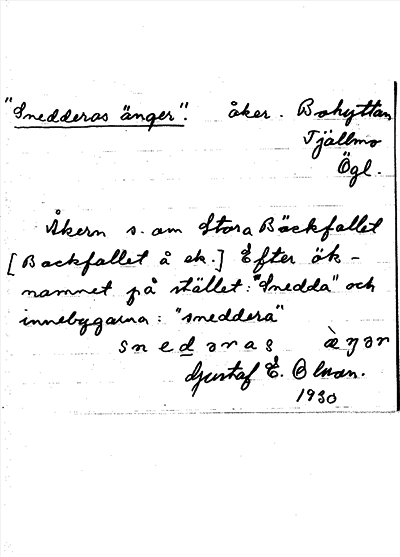 "Snedderas änger". åker. Bohyttan
Tjällmo
Ögl.
Åkern s. om Stora Bäckfallet
[Backfallet å ek.] Efter ök-
namnet på stället: "Snedda" och
innebyggarna: "sneddera"
snedəras æŋər
Gustaf E. Olson.
1930